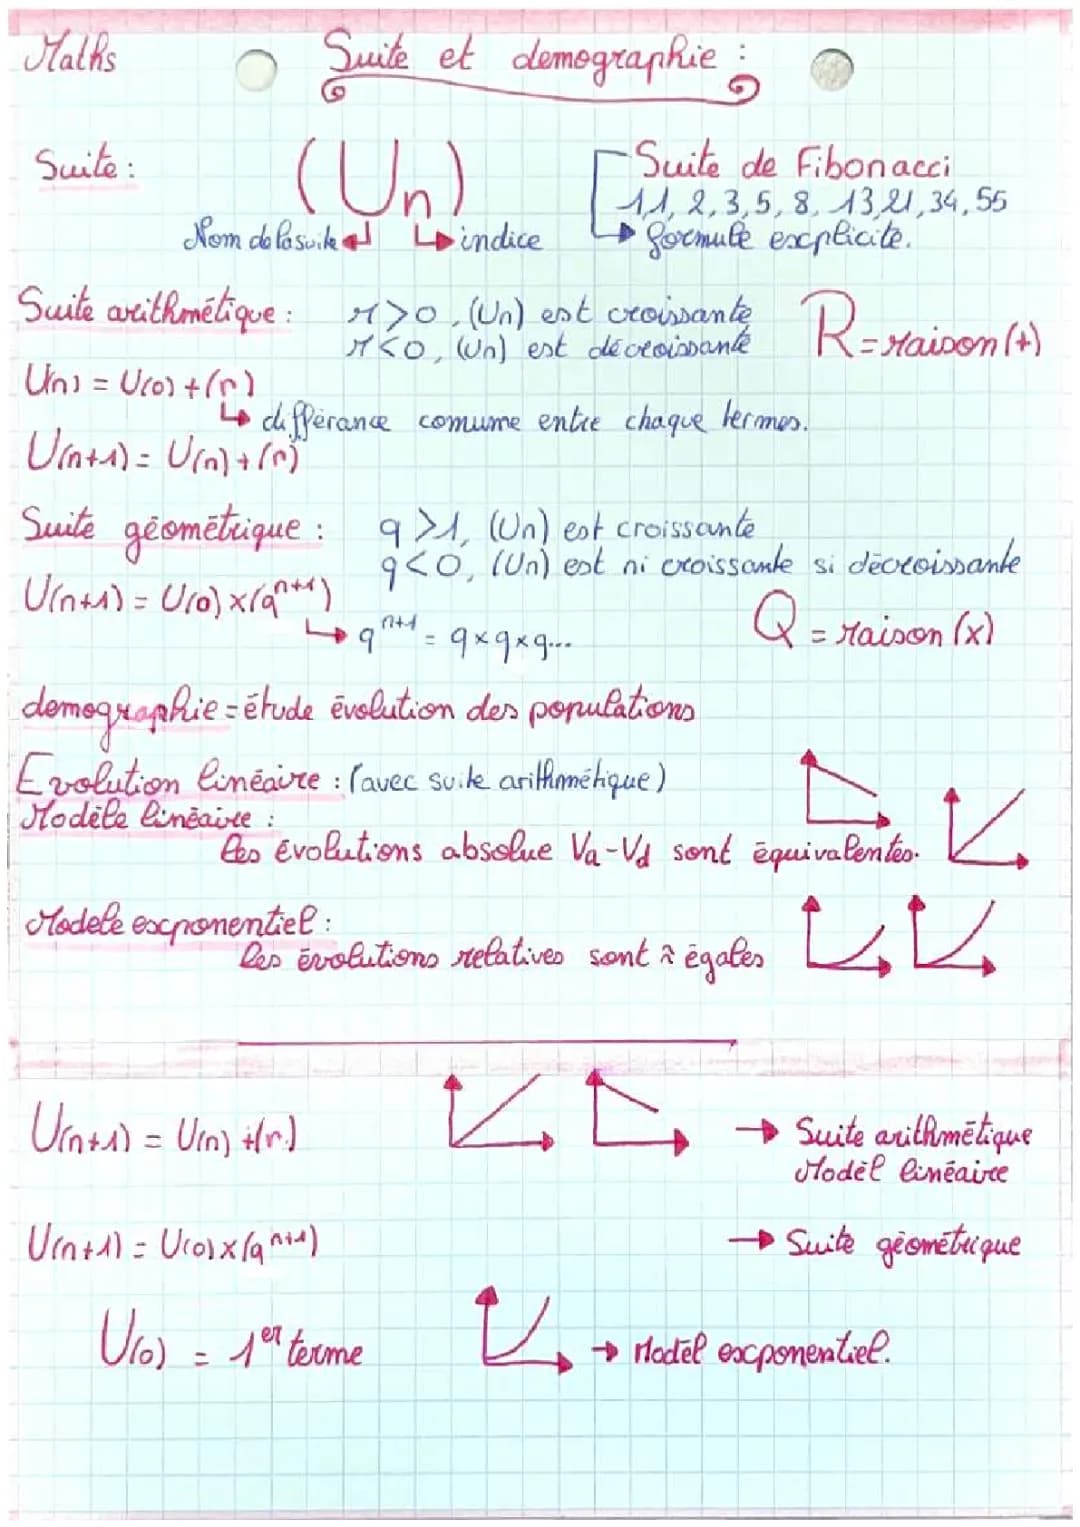 Maths
Suite et demographie :
Suite :
(Un)
Nom de la suite
indice
Suite de Fibonacci
11, 2, 3, 5, 8, 13, 21, 34, 55
formule explicite.
Suite arithmétique :
r>0, (Un) est croissante
r<0, (Un) est décroissante
R = raison (+)
U(n) = U(0) + (r)
différance comume entre chaque termes.
U(n+1) = U(n) + (r)
Suite géométrique :
q >1, (Un) est croissante
q<0, (Un) est ni croissante si décroissante
U(n+1) = U(0) x (q^n+1)
q^n+1 = q x q x q...
Q = raison (x)
demographie = étude évolution des populations
Evolution linéaire : (avec suite arithmétique)
Modèle linéaire :
les évolutions absolue Va-Vd sont équivalentes.
Modele exponentiel :
les évolutions relatives sont ≈ égales
U(n+1) = U(n) +(r)
→ Suite arithmétique
Modèl linéaire
U(n+1) = U(0) x (q^n+1)
→ Suite géométrique
U(0) = 1er terme
→ Modèl exponentiel.